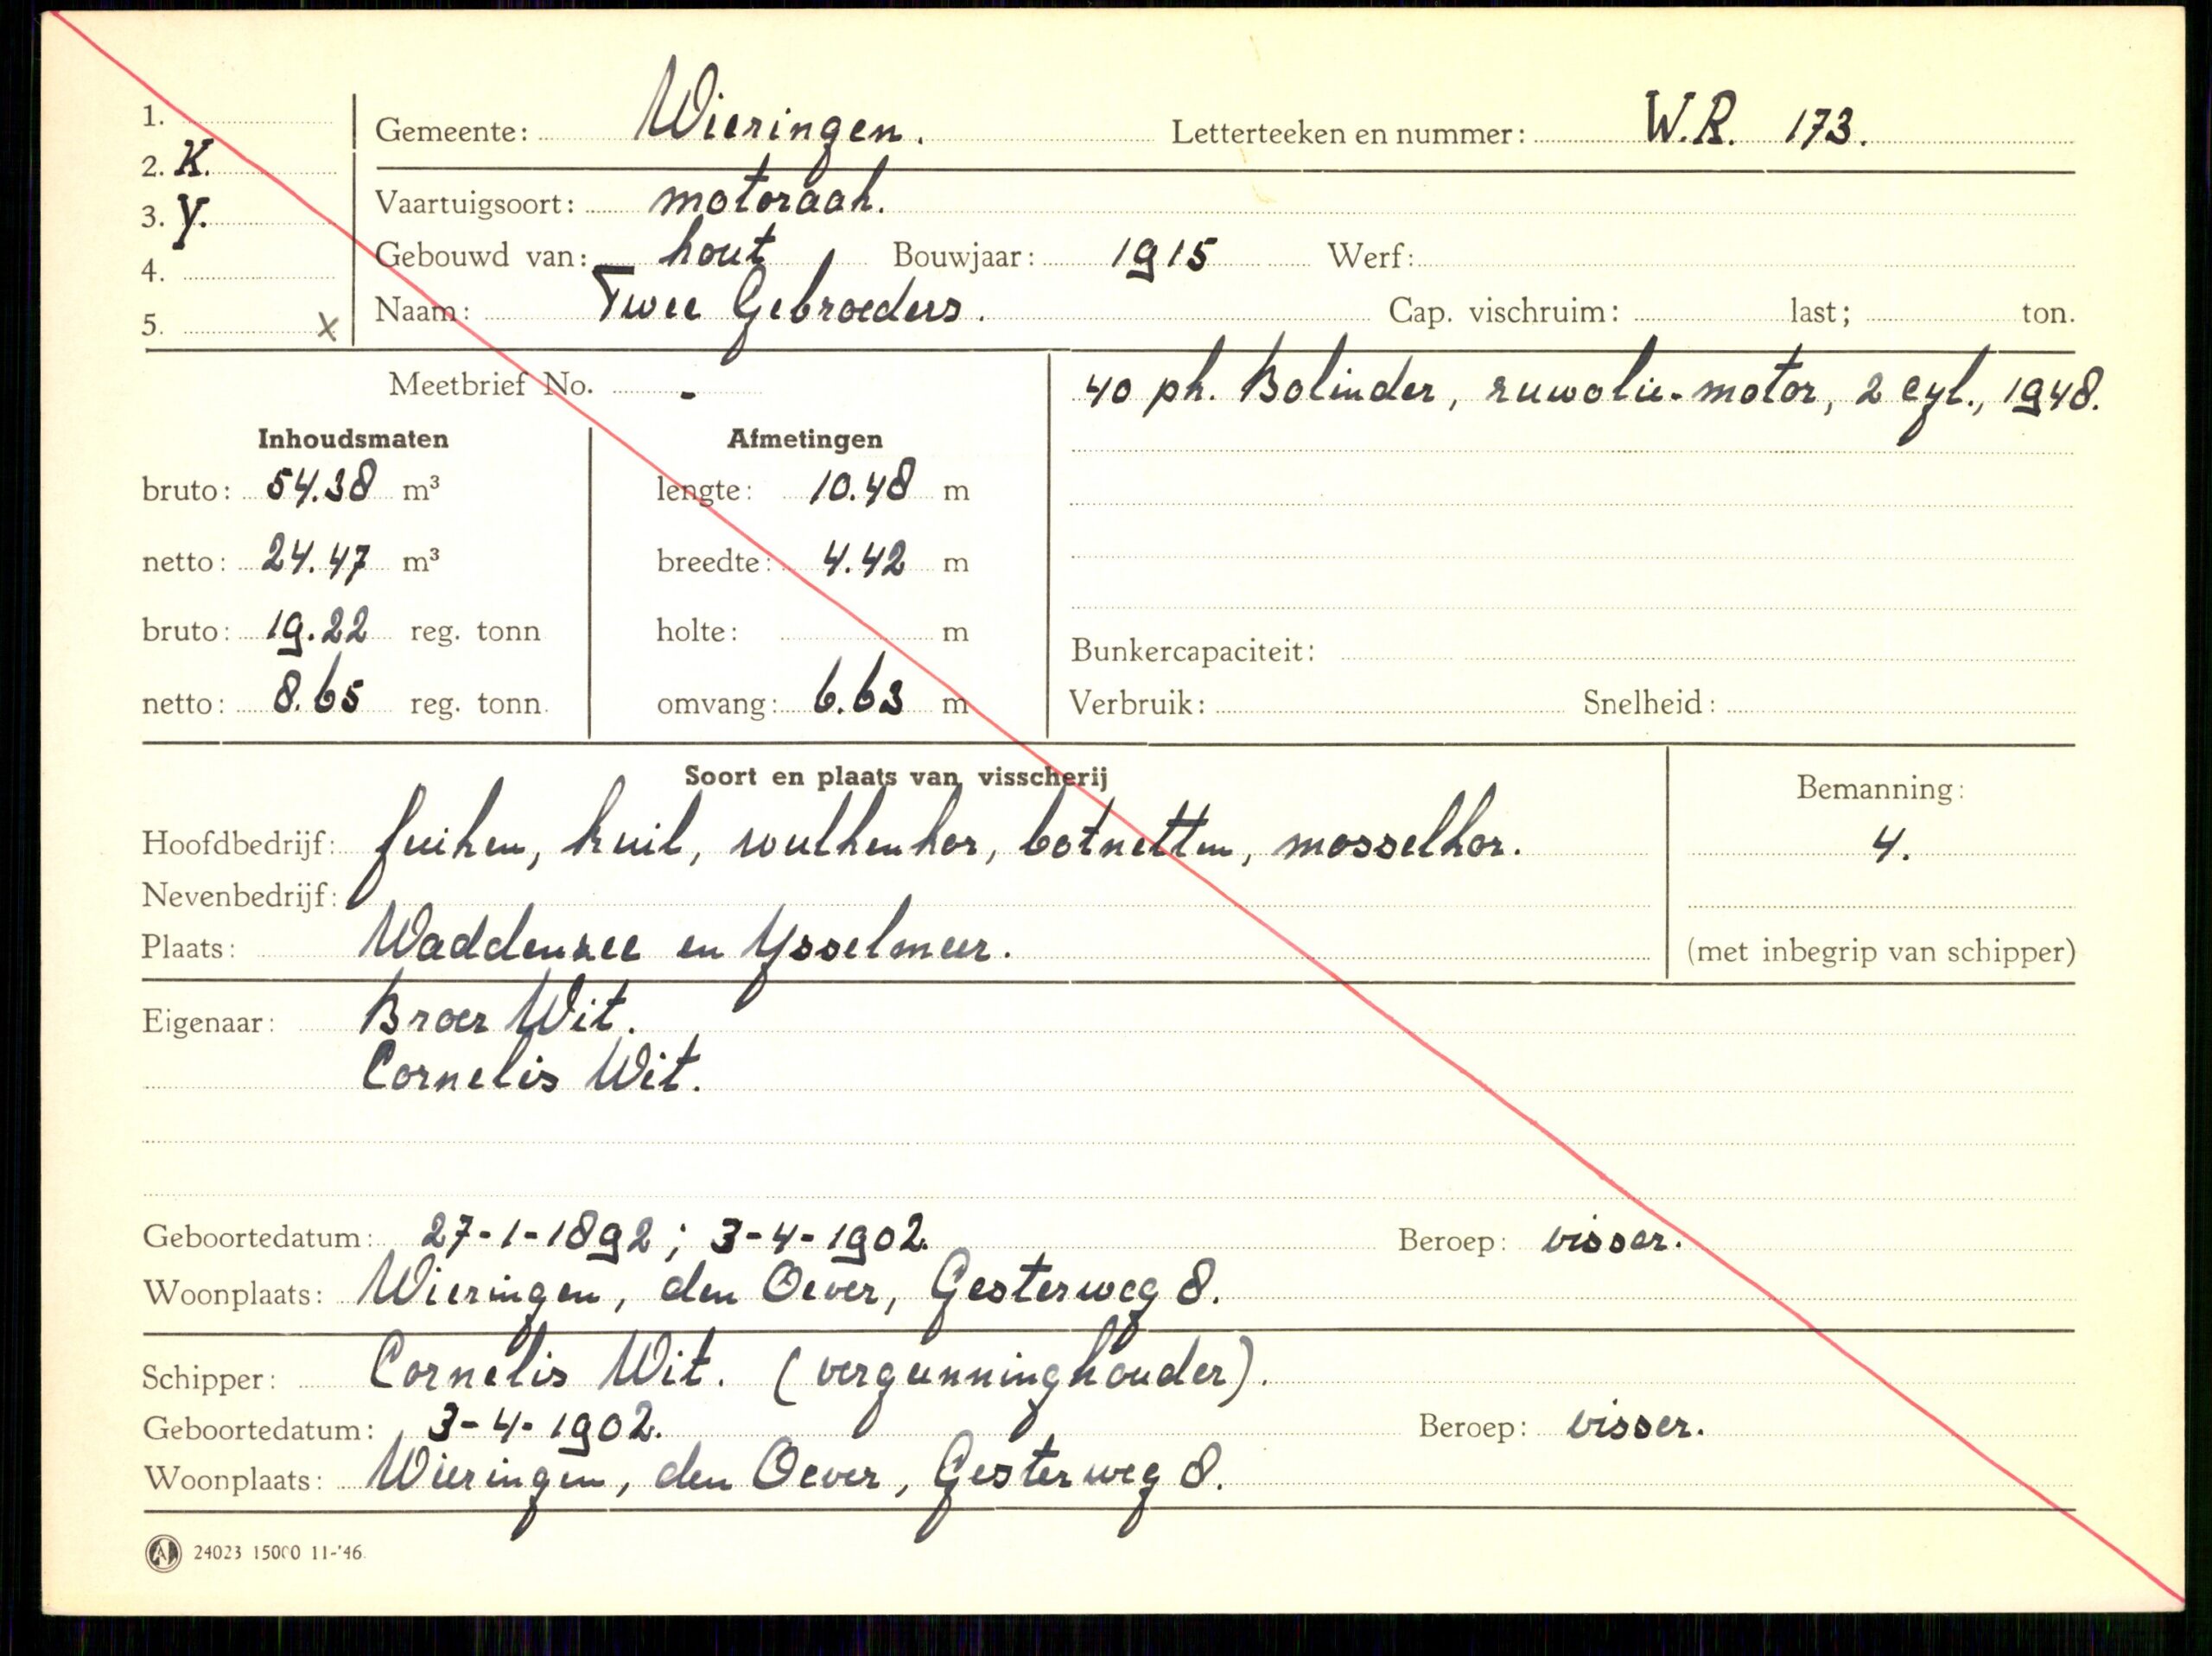 1.
Gemeente: Wieringen. Letterteeken en nummer: W.R. 173.
2. K.
3. Y.
Vaartuigsoort: motoraak.
4.
Gebouwd van: hout Bouwjaar: 1915 Werf:
5. x
Naam: Twee Gebroeders. Cap. vischruim: last; ton.
Meetbrief No. -
40 pk. Bolinder, ruwolie-motor, 2 cyl., 1948.
Inhoudsmaten
bruto: 54.38 m³
netto: 24.47 m³
bruto: 19.22 reg. tonn
netto: 8.65 reg. tonn.
Afmetingen
lengte: 10.48 m
breedte: 4.42 m
holte: m
omvang: 6.63 m
Bunkercapaciteit:
Verbruik: Snelheid:
Soort en plaats van visscherij
Hoofdbedrijf: fuiken, kuil, wulkenkor, botnetten, mosselkor.
Nevenbedrijf:
Plaats: Waddenzee en Ysselmeer.
Bemanning:
4.
(met inbegrip van schipper)
Eigenaar: Broer Wit.
Cornelis Wit.
Geboortedatum: 27-1-1892; 3-4-1902. Beroep: visser.
Woonplaats: Wieringen, den Oever, Gesterweg 8.
Schipper: Cornelis Wit. (vergunninghouder).
Geboortedatum: 3-4-1902. Beroep: visser.
Woonplaats: Wieringen, den Oever, Gesterweg 8.
A 24023 15000 11-'46.